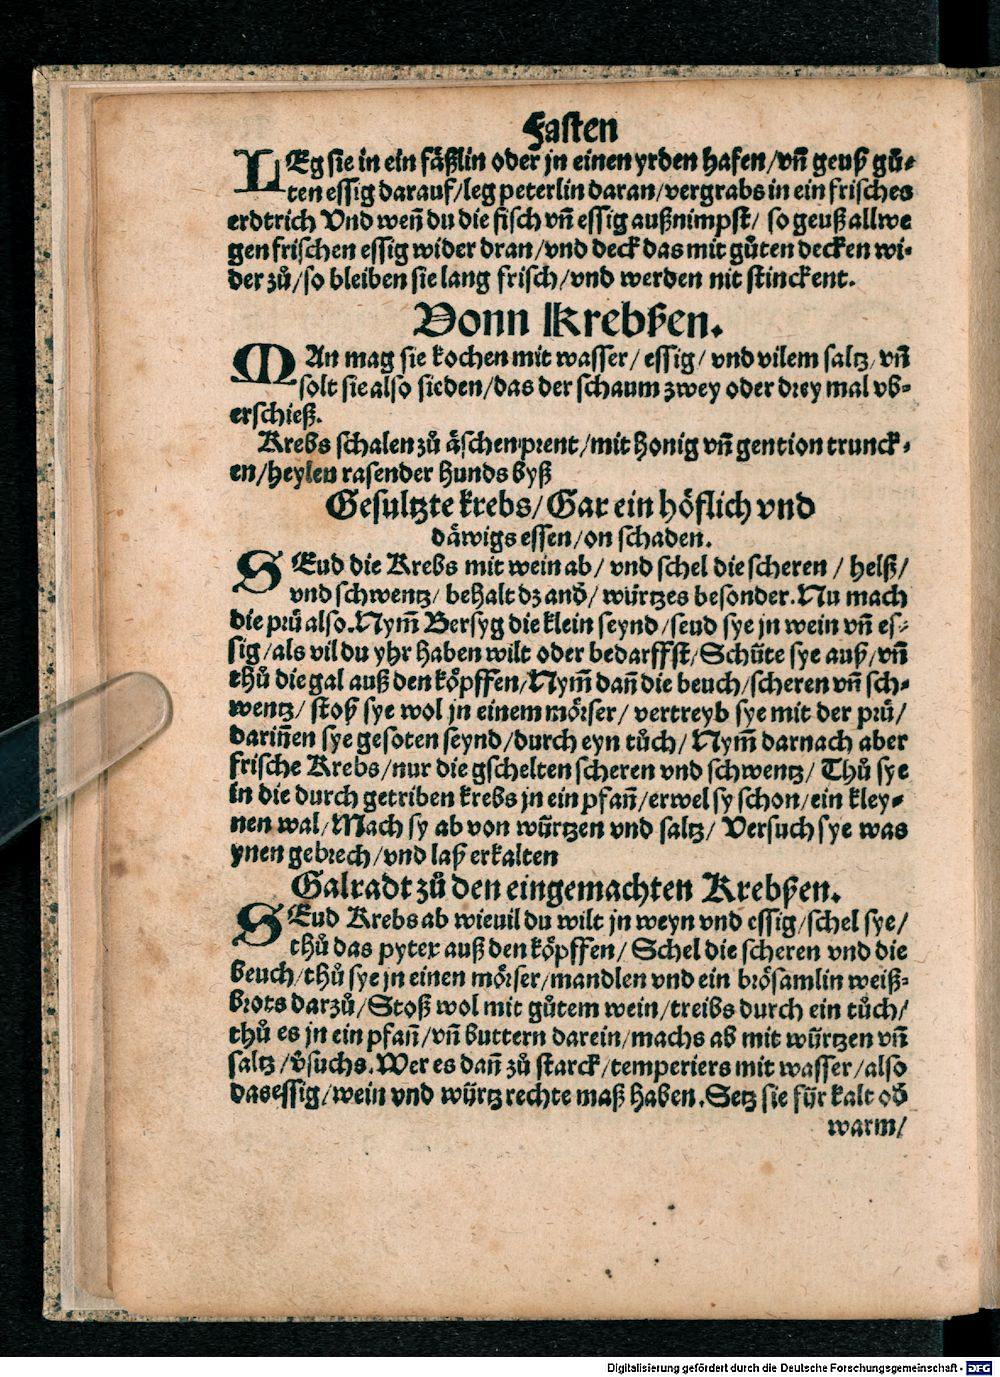 Fasten
LEg sie in ein fäßlin oder jn einen yrden hafen/vn̄ geuß gů-
ten essig darauf/leg peterlin daran/vergrabs in ein frisches
erdtrich Vnd wen̄ du die fisch vn̄ essig außnimpst/ so geuß allwe
gen frischen essig wider dran/vnd deck das mit gůten decken wi-
der zů/so bleiben sie lang frisch/vnd werden nit stinckent.
Vonn Krebßen.
MAn mag sie kochen mit wasser/ essig/ vnd vilem saltz/ vn̄
solt sie also sieden/das der schaum zwey oder drey mal vb-
erschieß.
Krebs schalen zů äschen prent/mit honig vn̄ gention trunck-
en/heylen rasender hunds byß
Gesultzte krebs/Gar ein höflich vnd
däwigs essen/on schaden.
SEud die Krebs mit wein ab/ vnd schel die scheren / helß/
vnd schwentz/ behalt dz and̄/ würtzes besonder.Nu mach
die prü also.Nym̄ Bersyg die klein seynd/seud sye jn wein vn̄ es-
sig/als vil du yhr haben wilt oder bedarffst/Schüte sye auß/vn̄
thů die gal auß den köpffen/Nym̄ dan̄ die beuch/scheren vn̄ sch-
wentz/ stoß sye wol jn einem mörser/ vertreyb sye mit der prü/
darin̄en sye gesoten seynd/durch eyn tůch/ Nym̄ darnach aber
frische Krebs/nur die gschelten scheren vnd schwentz/ Thů sye
in die durch getriben krebs jn ein pfan̄/erwel sy schon/ein kley-
nen wal/Mach sy ab von würtzen vnd saltz/ Versuch sye was
ynen gebrech/vnd laß erkalten
Galradt zů den eingemachten Krebßen.
SEud Krebs ab wieuil du wilt jn weyn vnd essig/schel sye/
thů das pyter auß den köpffen/ Schel die scheren vnd die
beuch/thů sye jn einen mörser/mandlen vnd ein brösamlin weiß-
brots darzů/Stoß wol mit gůtem wein/treibs durch ein tůch/
thů es jn ein pfan̄/vn̄ buttern darein/machs ab mit würtzen vn̄
saltz /v̄suchs.Wer es dan̄ zů starck/temperiers mit wasser/also
das essig/wein vnd würtz rechte maß haben.Setz sie für kalt od̄
warm/
Digitalisierung gefördert durch die Deutsche Forschungsgemeinschaft - DFG